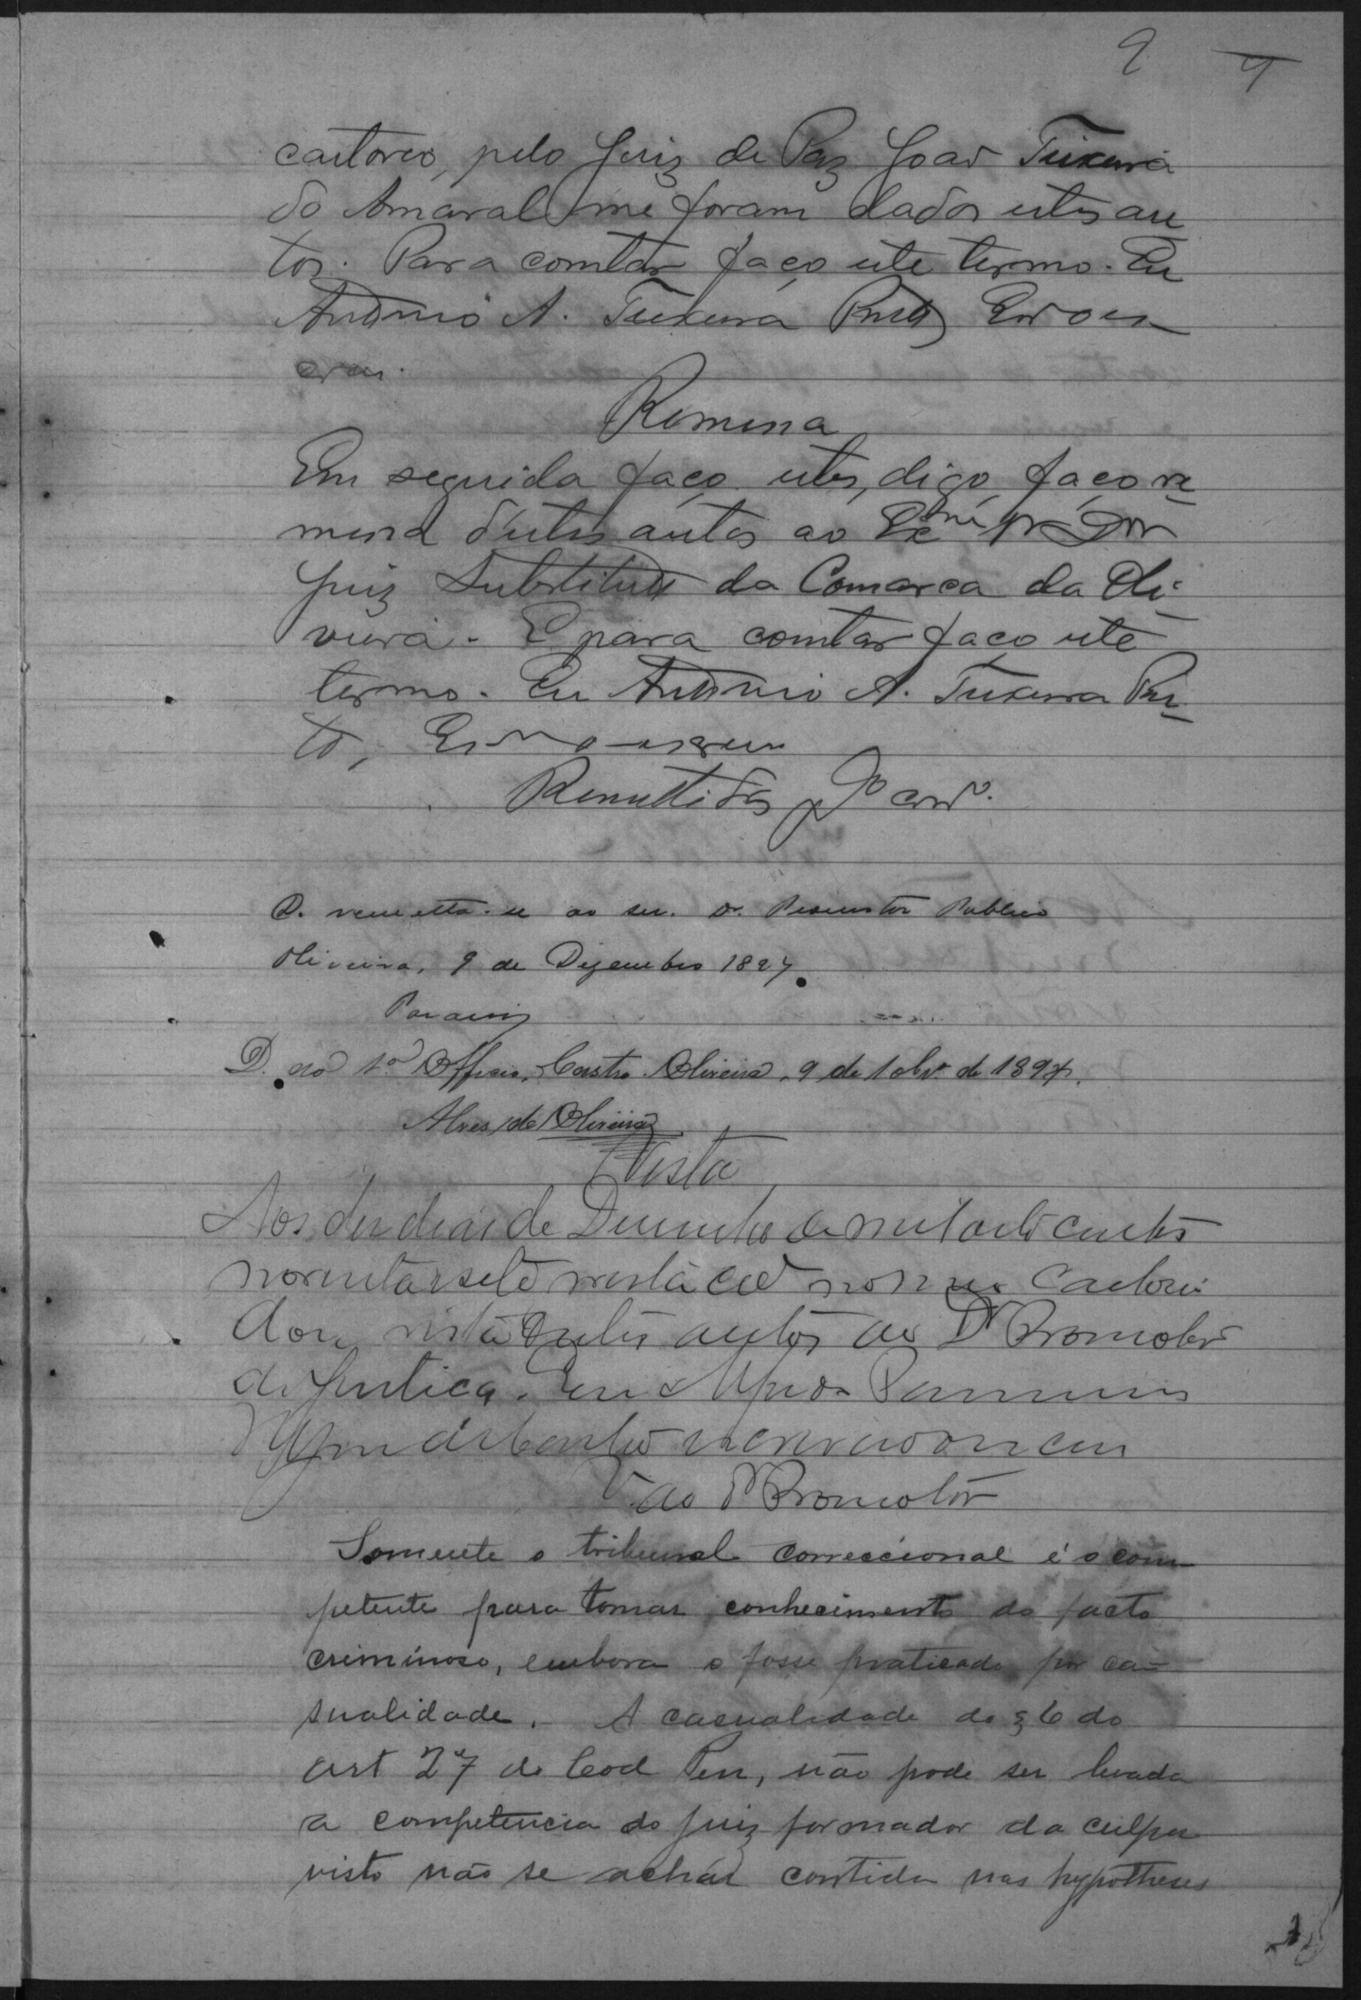 9 9
cartorio, pelo Juiz de Paz João Teixeira
do Amaral me foram dados estes au
tos. Para constar faço este termo. Eu
Antonio A. Teixeira Pinto Escri
vão.
Remessa
Em seguida faço estes, digo, faço re
messa d'estes autos ao Exmo Sr Dor
Juiz Substituto da Comarca da Oli-
veira. E para constar faço este
termo. Eu Antonio A. Teixeira Pin
to, Escrivão escrevi
Remettidos
D. remetta-se ao snr. Dr. Promotor Publico
Oliveira, 9 de Dezembro 1897.
D. ao 1º Officio, Castro. Oliveira, 9 de 1obrº de 1897.
Alves de Oliveira
Vista
Aos dez dias de Dezembro de mil oito centos
noventa e sete nesta cide no meu Cartorio
dou vista destes autos ao Dr Promotor
de Justiça. Eu Alfredo
de Castro escrivão o escrevi
Vª ao Dr Promotor
Somente o tribunal correccional é o com-
petente para tomar conhecimento do facto
criminoso, embora o fosse praticado por ca-
sualidade. A casualidade do § 6 do
art 27 do Cod Pen, não pode ser levada
a competencia do juiz formador da culpa
visto não se achar contida nas hypotheses